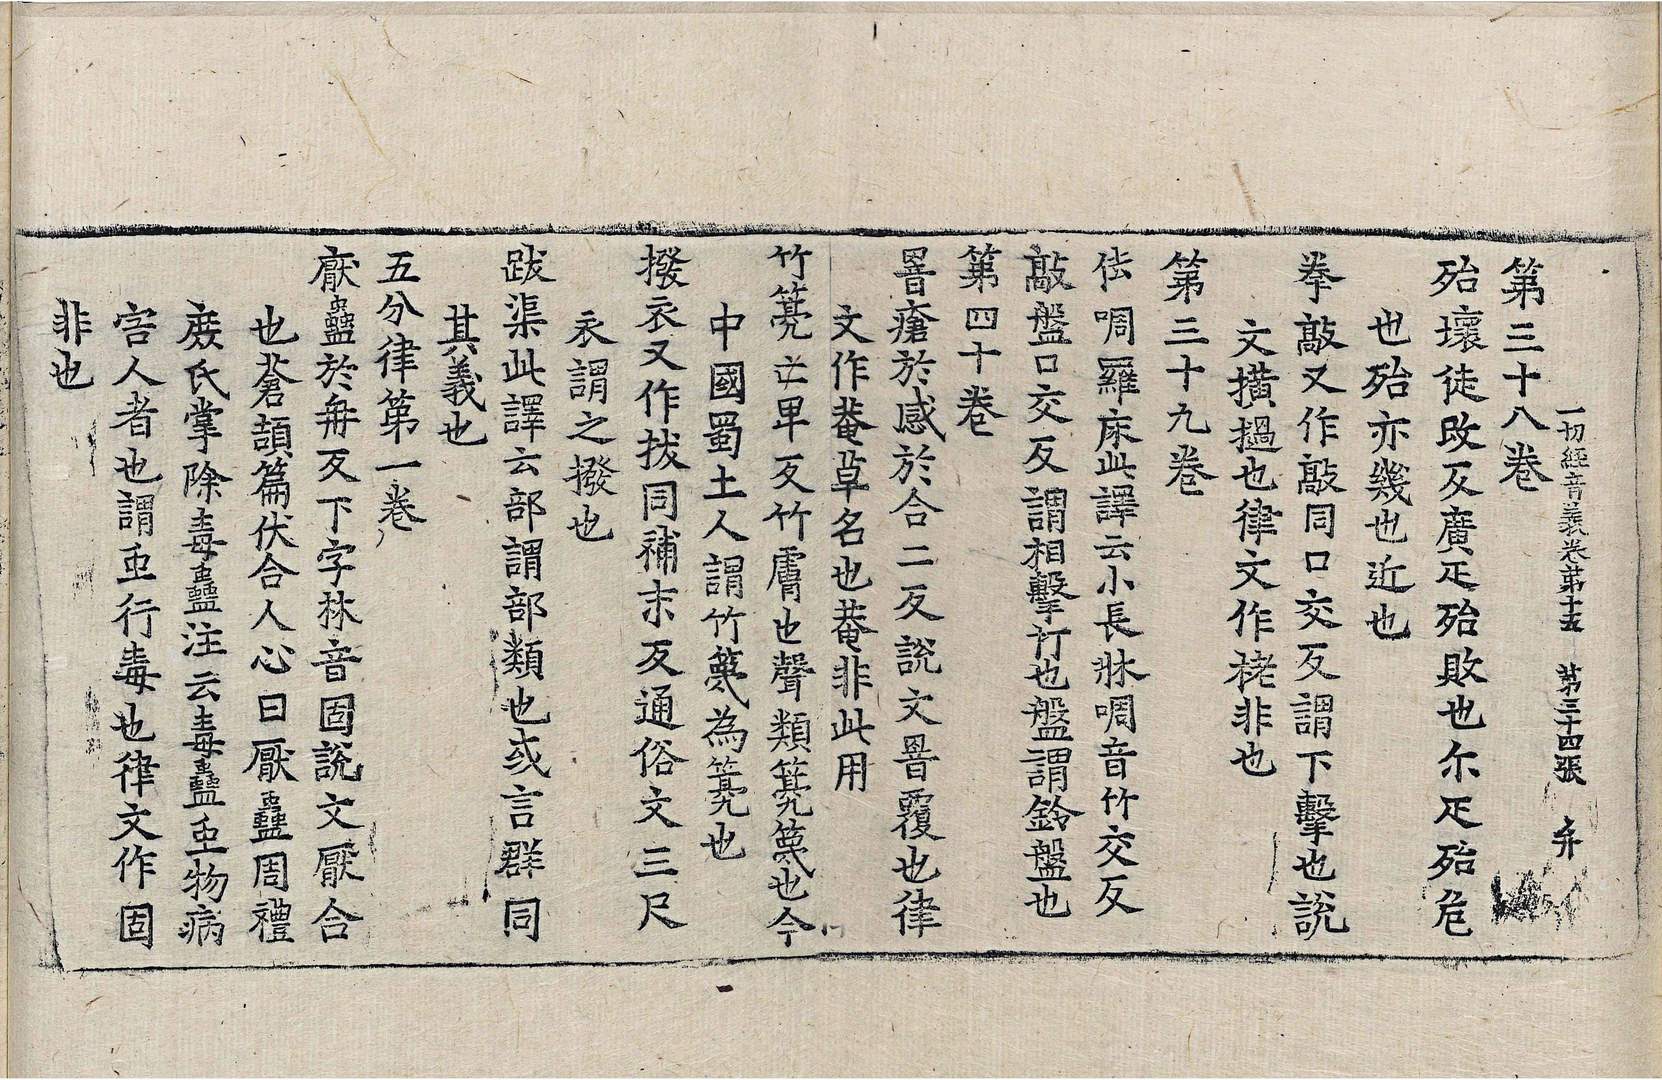 一切經音義卷第十五 第三十四張 弁
第三十八卷
殆壞徒改反廣疋殆敗也尔疋殆危
也殆亦幾也近也
拳敲又作敲同口交反謂下擊也說
文㩇撾也律文作栳非也
佉啁羅床此譯云小長牀啁音竹交反
敲盤口交反謂相擊打也盤謂鈴盤也
第三十九卷
第四十卷
罯瘡於感於合二反說文罯覆也律
文作菴草名也菴非此用
竹䈄亡卑反竹膚也聲類䈄篾也今
中國蜀土人謂竹篾為䈄也
撥衣又作拔同補末反通俗文三尺
衣謂之撥也
跋渠此譯云部謂部類也或言群同
其義也
五分律第一卷
厭蠱於冉反下字林音固說文厭合
也蒼頡篇伏合人心曰厭蠱周禮
庶氏掌除毒蠱注云毒蠱虫物病
害人者也謂虫行毒也律文作固
非也